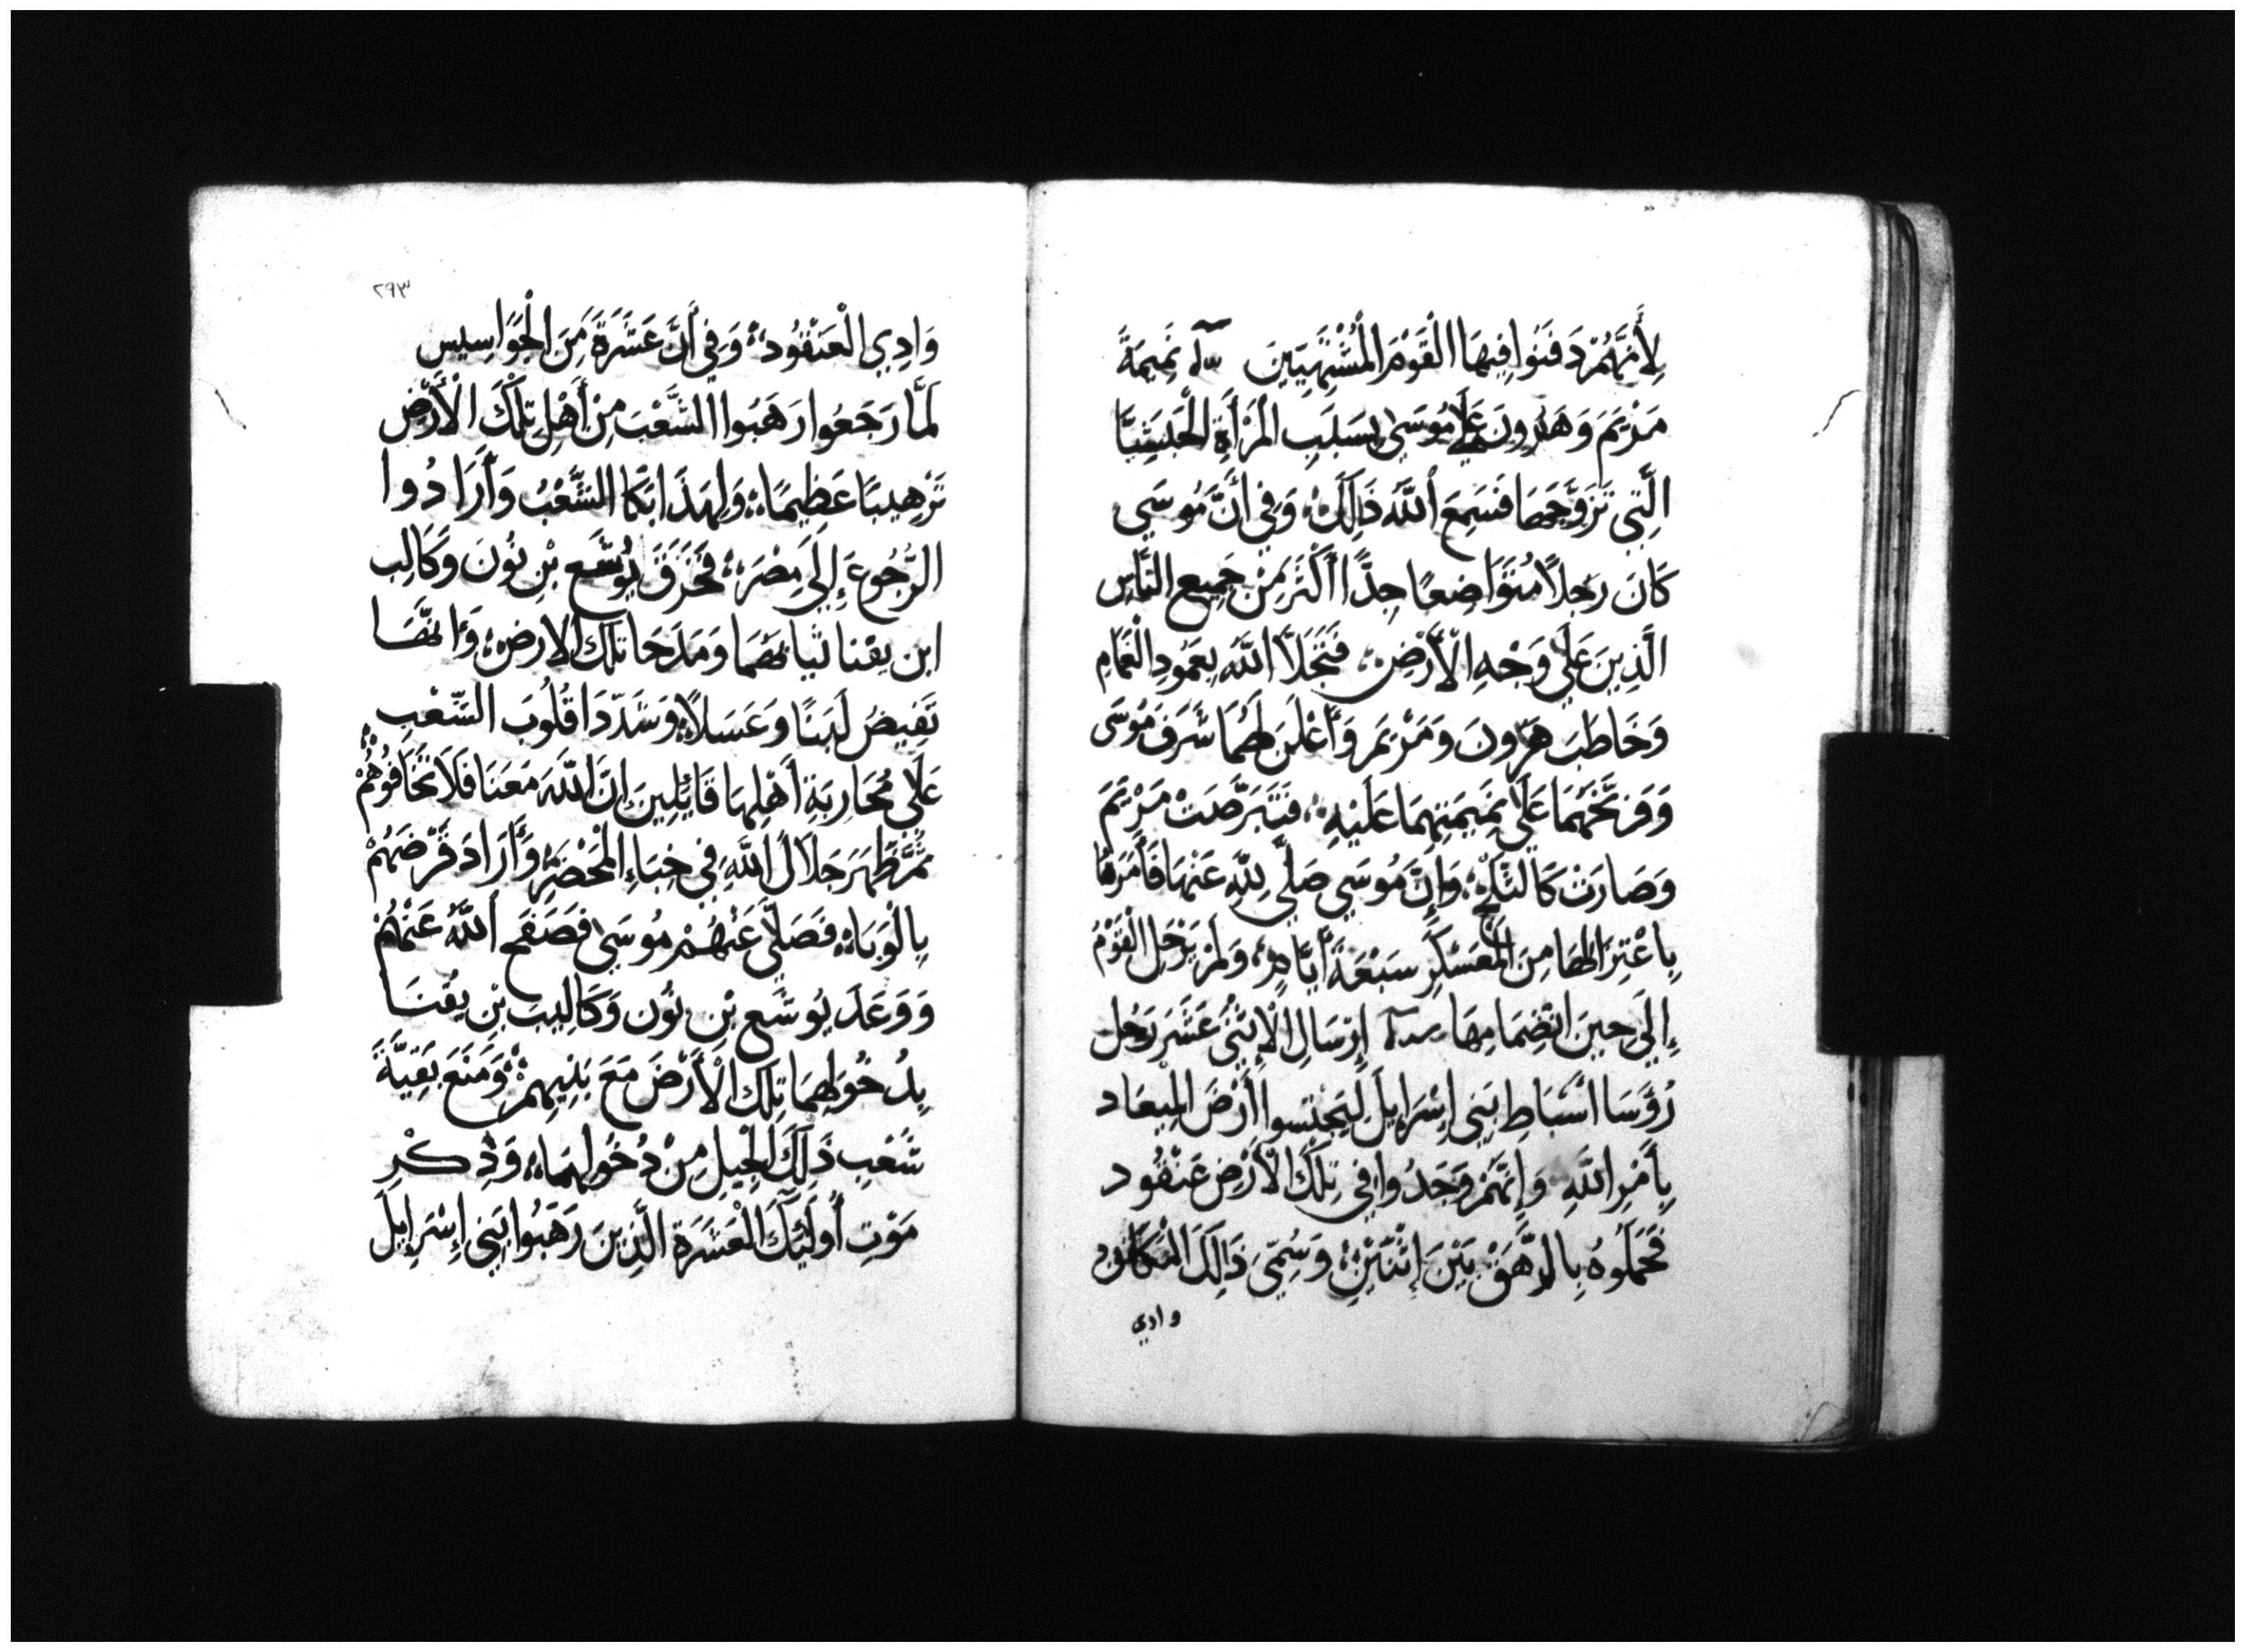 لِأَنَّهُمْ دَفَنُوا فِيهَا الْقَوْمَ الْمُشْتَهِيِينَ نَمِيمَةُ
مَرْيَمَ وَهَرُونَ عَلَى مُوسَى بِسَبَبِ الْمَرْأَةِ الْحَبَشِيَّا
الَّتِي تَزَوَّجَهَا فَسَمِعَ اللَّهُ ذَالِكَ؞ وَفِي أَنَّ مُوسَى
كَانَ رَجُلاً مُتَوَاضِعًا جِدًّا أَكْثَرَ مِنْ جَمِيعِ النَّاسِ
الَّذِينَ عَلَى وَجْهِ الْأَرْضِ؞ فَتَجَلَّا اللَّهُ بِعَمُودِ الْغَمَامِ
وَخَاطَبَ هَرُونَ وَمَرْيَمَ وَأَعْلَنَ لَهُمَا شَرَفَ مُوسَى
وَوَبَّخَهُمَا عَلَى نَمِيمَتِهِمَا عَلَيْهِ؞ فَتَبَرَّصَتْ مَرْيَمَ
وَصَارَتْ كَالثَّلْجِ؞ وَإِنَّ مُوسَى صَلَّى لِلَّهِ عَنْهَا فَأَمَرَهَا
بِاعْتِزَالِهَا مِنَ الْمُعَسْكَرِ سَبْعَةَ أَيَّامٍ؞ وَلَمْ يَرْحَلِ الْقَوْمُ
إِلَى حِينَ انْضِمَامِهَا إِرْسَالِ الْإِثْنَى عَشَرَ رَجُل
رُؤَسَا أَسْبَاطِ بَنِي إِسْرَايِلَ لِيَجْتَسُوا أَرْضَ الْمِيعَاد
بِأَمْرِ اللَّهِ وَإِنَّهُمْ وَجَدُوا فِي تِلْكَ الْأَرْضِ عَنْقُود
فَحَمَلُوهُ بِالدَّهَقْ بَيْنَ إِثْنَيْنِ؞ وَسُمِّيَ ذَالِكَ الْمَكَانُ
وادي
٢٩٣
وَادِي الْعَنْقُودِ؞ وَفِي أَنَّ عَشَرَةَ مِنَ الْجَوَاسِيس
لَمَّا رَجَعُوا رَهَبُوا الشَّعْبَ مِنْ أَهْلِ تِلْكَ الْأَرْضِ
تَرْهِيبًا عَظِيمًا؞ وَلِهَذَا بَكَا الشَّعْبُ وَأَرَادُوا
الرُّجُوعَ إِلَى مِصْرَ؞ فَخَزَقَ يُوشَع بْنِ نُونَ وَكَالِب
ابن يفنا ثيابهما وَمَدَحَا تلك الارض؞ وَانهَا
تَفِيضُ لَبَنًا وَعَسَلاً؞ وَشَدَّدَا قُلُوبَ الشَّعْبِ
عَلَى مُحَارِبَةِ أَهْلِهَا قَايِلِينَ إِنَّ اللَّهَ مَعَنَا فَلَا تَخَافُوهُمْ؞
ثُمَّ ظَهَرَ جَلَالُ اللَّهِ فِي خِبَاءِ الْمَحْضَرِ وَأَرَادَ قَرْضَهُمْ
بِالْوَبَاءِ؞ فَصَلَّى عَنْهُمْ مُوسَى فَصَفَحَ اللَّهُ عَنْهُمْ
وَوَعَدَ يُوشَع بْنِ نُون وَكَالِيبَ بْنِ يفْنَا
بِدُخُولِهِمَا تِلْكَ الْأَرْضَ مَعَ بَنِيهِمْ؞ وَمَنَعَ بَقِيَّةَ
شَعْبِ ذَلِكَ الْجِيلِ مِنْ دُخُولِهَا؞ وَذِكْرِ
مَوْتِ أُولَئِكَ الْعَشَرَةِ الَّذِينَ رَهَبُوا بَنِي إِسْرَايِلَ